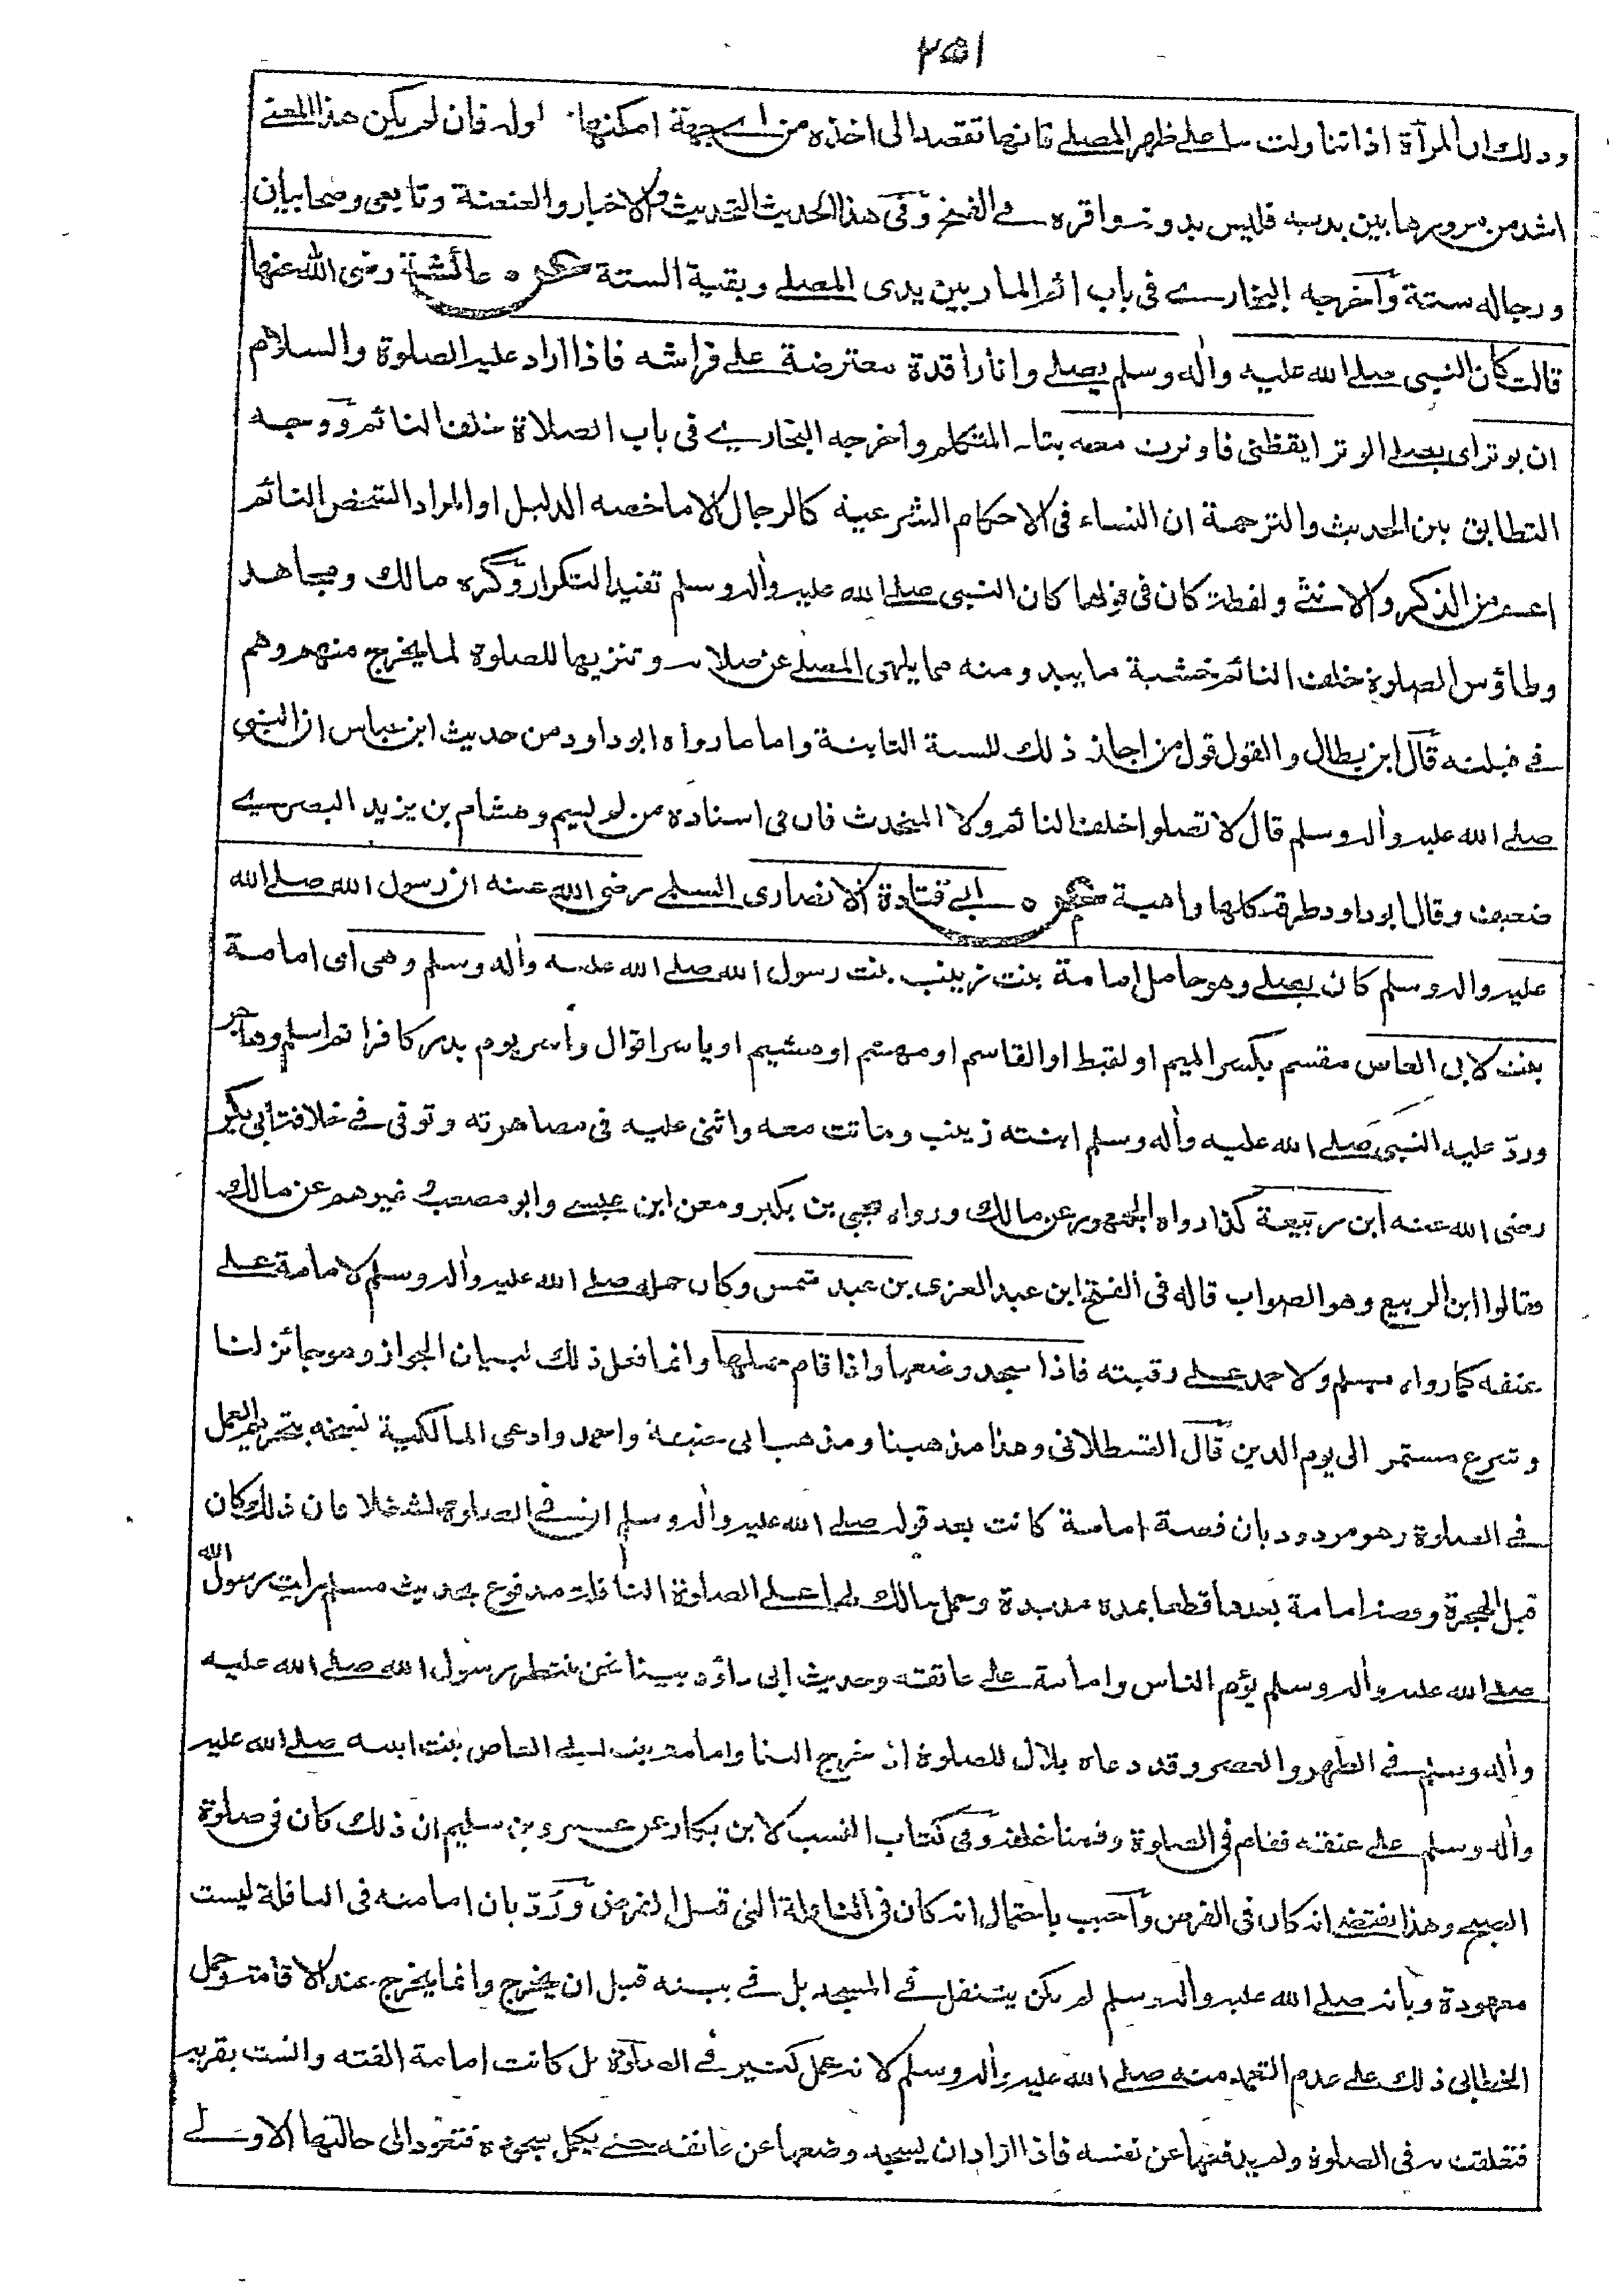 ٢٥١
وذلك ان المرأة اذا تناولت ما على ظهر المصلے فانها تقصد الى اخذه من اے جهة امكنها اوله فان لم يكن هذا المعنے
اشد من مرورها بين يديه فليس بدونه واقره فے الفتح وفى هذا الحديث التحديث والاخبار والعنعنة وتابعى وصحابيان
ورجاله ستة وآخرجه البخارے فى باب اثم المار بين يدى المصلے وبقية الستة عن عائشة رضى الله عنها
قالت كان النبى صلے الله عليه واٰله وسلم يصلے وانا راقدة معترضة علے فراشه فاذا اراد عليه الصلوة والسلام
ان يوتر اى يصلے الوتر ايقظنى فاوترت معه بتاء المتكلم واخرجه البخارے فى باب الصلاة خلف النائم ووجه
التطابق بين الحديث والترجمة ان النساء فى الاحكام الشرعية كالرجال الا ما خصه الدليل او المراد الشخص النائم
اعم من الذكر والانثے ولفظة كان فى قولها كان النبى صلے الله عليه واٰله وسلم تفيد التكرار وكره مالك ومجاهد
وطاؤس الصلوة خلف النائم خشية ما يبدو منه مما يلهى المصلے عن صلاته وتنزيها للصلوة لما يخرج منهم وهم
فے قبلته قال ابن بطال والقول قول من اجاز ذلك للسنة الثابتة واما ما رواه ابو داود من حديث ابن عباس ان النبى
صلے الله عليه واٰله وسلم قال لا تصلوا خلف النائم ولا المتحدث فان فى اسناده من لم يسم وهشام بن يزيد البصرے
ضعيف وقال ابو داود طرقه كلها واهية عن ابے قتادة الانصارى السلمے رضى الله عنه ان رسول الله صلے الله
عليه واٰله وسلم كان يصلے وهو حامل امامة بنت زينب بنت رسول الله صلے الله عليه واٰله وسلم وهى اى امامة
بنت لابى العاص مقسم بكسر الميم او لقيط او القاسم او مهشم او هشيم او ياسر اقوال وأسر يوم بدر كافرا ثم اسلم وهاجر
وردّ عليه النبى صلے الله عليه واٰله وسلم ابنته زينب وماتت معه واثنى عليه فى مصاهرته وتوفى فے خلافة أبى بكر
رضى الله عنه ابن ربيعة كذا رواه الجمهور عن مالك ورواه يحيى بن بكير ومعن ابن عيسے وابو مصعب وغيرهم عن مالك
فقالوا ابن الربيع وهو الصواب قاله فى الفتح ابن عبد العزى بن عبد شمس وكان حمله صلے الله عليه واٰله وسلم لامامة علے
عنقه كما رواه مسلم ولاحمد علے رقبته فاذا سجد وضعها واذا قام حملها وانما فعل ذلك لبيان الجواز وهو جائز لنا
وشرع مستمر الى يوم الدين قال القسطلانى وهذا مذهبنا ومذهب ابى حنيفة واحمد وادعى المالكية نسخه بتحريم العمل
فے الصلوة وهو مردود بان قصة امامة كانت بعد قوله صلے الله عليه واٰله وسلم ان فے الصلوة لشغلا فان ذلك كان
قبل الهجرة وقصة امامة بعدها قطعا بمدة مديدة وحمل مالك لها علے الصلوة النافلة مدفوع بحديث مسلم رايت رسول الله
صلے الله عليه واٰله وسلم يؤم الناس وامامة علے عاتقه وحديث ابى داؤد بينا نحن ننتظر رسول الله صلے الله عليه
واٰله وسلم فے الظهر والعصر وقد دعاه بلال للصلوة اذ خرج الينا وامامة بنت ابے العاص بنت ابنته صلے الله عليه
واٰله وسلم علے عنقه فقام فى الصلوة وقمنا خلفه وفى كتاب النسب لابن بكار عن عمرو بن سليم ان ذلك كان فى صلوة
الصبح وهذا يقتضے انه كان فى الفرض وأجيب باحتمال انه كان فى النافلة التى قبل الفرض ورُدّ بان امامته فى النافلة ليست
معهودة وبانه صلے الله عليه واٰله وسلم لم يكن يتنفل فے المسجد بل فے بيته قبل ان يخرج وانما يخرج عند الاقامة وحمل
الخطابى ذلك علے عدم التعمد منه صلے الله عليه واٰله وسلم لانه عمل كثير فے الصلوة بل كانت امامة الفته وانست بقربه
فتعلقت به فى الصلوة ولم يدفعها عن نفسه فاذا اراد ان يسجد وضعها عن عاتقه حتے يكمل سجوده فتعود الى حالتها الاولے